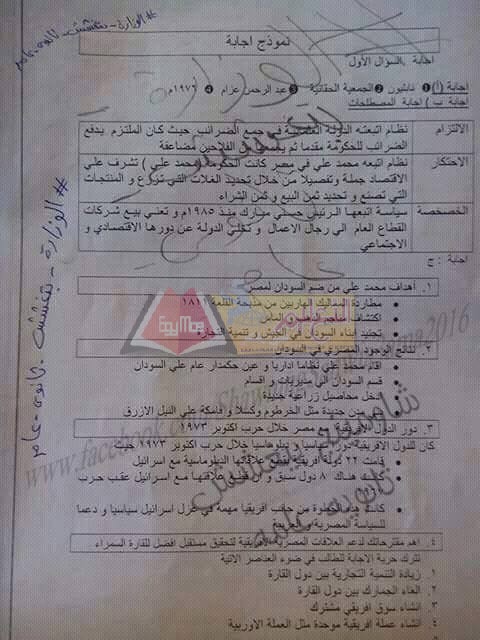 #الوزارة - بتغشش - ثانوى - عام
نموذج اجابة
اجابة السؤال الأول
اجابة (أ) ① نابليون ② الجمعية الحقانية ③ عبد الرحمن عزام ④ ١٩٧٦م
اجابة ب ) اجابة المصطلحات
الالتزام
نظام اتبعته الدولة العثمانية في جمع الضرائب حيث كان الملتزم يدفع
الضرائب للحكومة مقدما ثم يحصلها من الفلاحين مضاعفة
الاحتكار
نظام اتبعه محمد علي في مصر كانت الحكومة (محمد علي ) تشرف علي
الاقتصاد جملة وتفصيلا من خلال تحديد الغلات التي تزرع و المنتجات
التي تصنع و تحديد ثمن البيع و ثمن الشراء
الخصخصة
سياسة اتبعها الرئيس حسني مبارك منذ ١٩٨٥م و تعني بيع شركات
القطاع العام الي رجال الاعمال و تخلي الدولة عن دورها الاقتصادي و
الاجتماعي
اجابة : ج
١. أهداف محمد علي من ضم السودان لمصر
مطاردة المماليك الهاربين من مذبحة القلعة ١٨١١
اكتشاف مناجم الذهب و الماس
تجنيد ابناء السودان في الجيش و تنمية التجارة
٢. نتائج الوجود المصري في السودان
اقام محمد علي نظاما اداريا و عين حكمدار عام علي السودان
قسم السودان الي مديريات و اقسام
ادخل محاصيل زراعية جديدة
مدن جديدة مثل الخرطوم وكسلا و فامكة علي النيل الازرق
٣. دور الدول الافريقية مع مصر خلال حرب اكتوبر ١٩٧٣
كان للدول الافريقية دورا سياسيا و دبلوماسيا خلال حرب اكتوبر ١٩٧٣ حيث
قامت ٢٢ دولة افريقية بقطع علاقاتها الدبلوماسية مع اسرائيل
كانت هناك ٨ دول سبق و ان قطعت علاقتها مع اسرائيل عقب حرب
كانت هذه الخطوة من جانب افريقيا مهمة في عزل اسرائيل سياسيا و دعما
للسياسة المصرية و العربية
٤. اهم مقترحاتك لدعم العلاقات المصرية الافريقية لتحقيق مستقبل افضل للقارة السمراء
تترك حرية الاجابة للطالب في ضوء العناصر الاتية
١. زيادة التنمية التجارية بين دول القارة
٢. الغاء الجمارك بين دول القارة
٣. انشاء سوق افريقي مشترك
٤. انشاء عملة افريقية موحدة مثل العملة الاوربية
#الوزارة - بتغشش - ثانوى - عام
شاومينج بيغشش
ثانوية عامة
www.facebook.com
2016